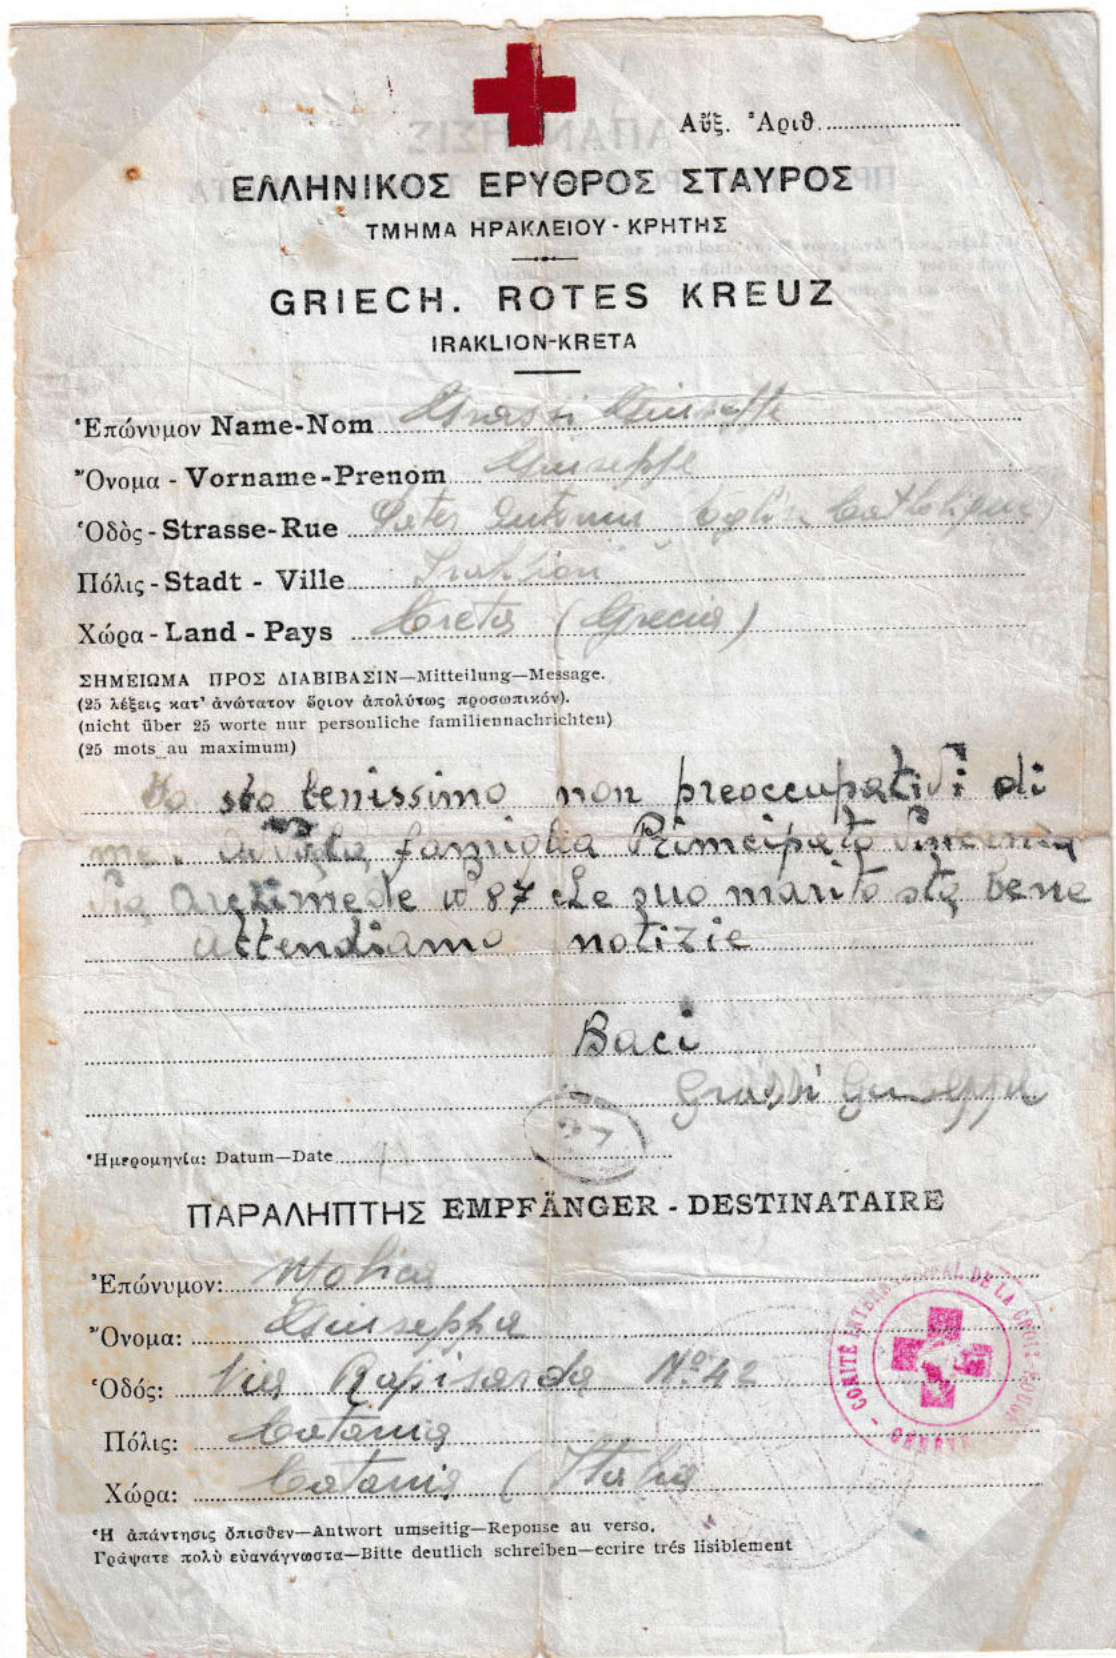 Αὔξ. Ἀριθ.
ΕΛΛΗΝΙΚΟΣ ΕΡΥΘΡΟΣ ΣΤΑΥΡΟΣ
ΤΜΗΜΑ ΗΡΑΚΛΕΙΟΥ - ΚΡΗΤΗΣ
GRIECH. ROTES KREUZ
IRAKLION-KRETA
Ἐπώνυμον Name-Nom Grassi Giuseppe
Ὄνομα - Vorname-Prenom Giuseppe
Ὁδὸς - Strasse-Rue Pater
Πόλις - Stadt - Ville Iraklion
Χώρα - Land - Pays Creta (Grecia)
ΣΗΜΕΙΩΜΑ ΠΡΟΣ ΔΙΑΒΙΒΑΣΙΝ—Mitteilung—Message.
(25 λέξεις κατ' ἀνώτατον ὅριον ἀπολύτως προσωπικόν).
(nicht über 25 worte nur personliche familiennachrichten)
(25 mots au maximum)
Io sto benissimo non preoccupativi di
me. famiglia Principato
via Archimede n° 87 che suo marito sta bene
attendiamo notizie
Baci
Grassi Giuseppe
Ἡμερομηνία: Datum—Date
ΠΑΡΑΛΗΠΤΗΣ EMPFÄNGER - DESTINATAIRE
Ἐπώνυμον:
Ὄνομα: Giuseppa
Ὁδός: Via Rapisarda No 42
Πόλις: Catania
Χώρα: Catania (Italia
COMITÉ INTERNATIONAL DE LA CROIX ROUGE - GENÈVE -
Ἡ ἀπάντησις ὄπισθεν—Antwort umseitig—Reponse au verso.
Γράψατε πολὺ εὐανάγνωστα—Bitte deutlich schreiben—ecrire trés lisiblement